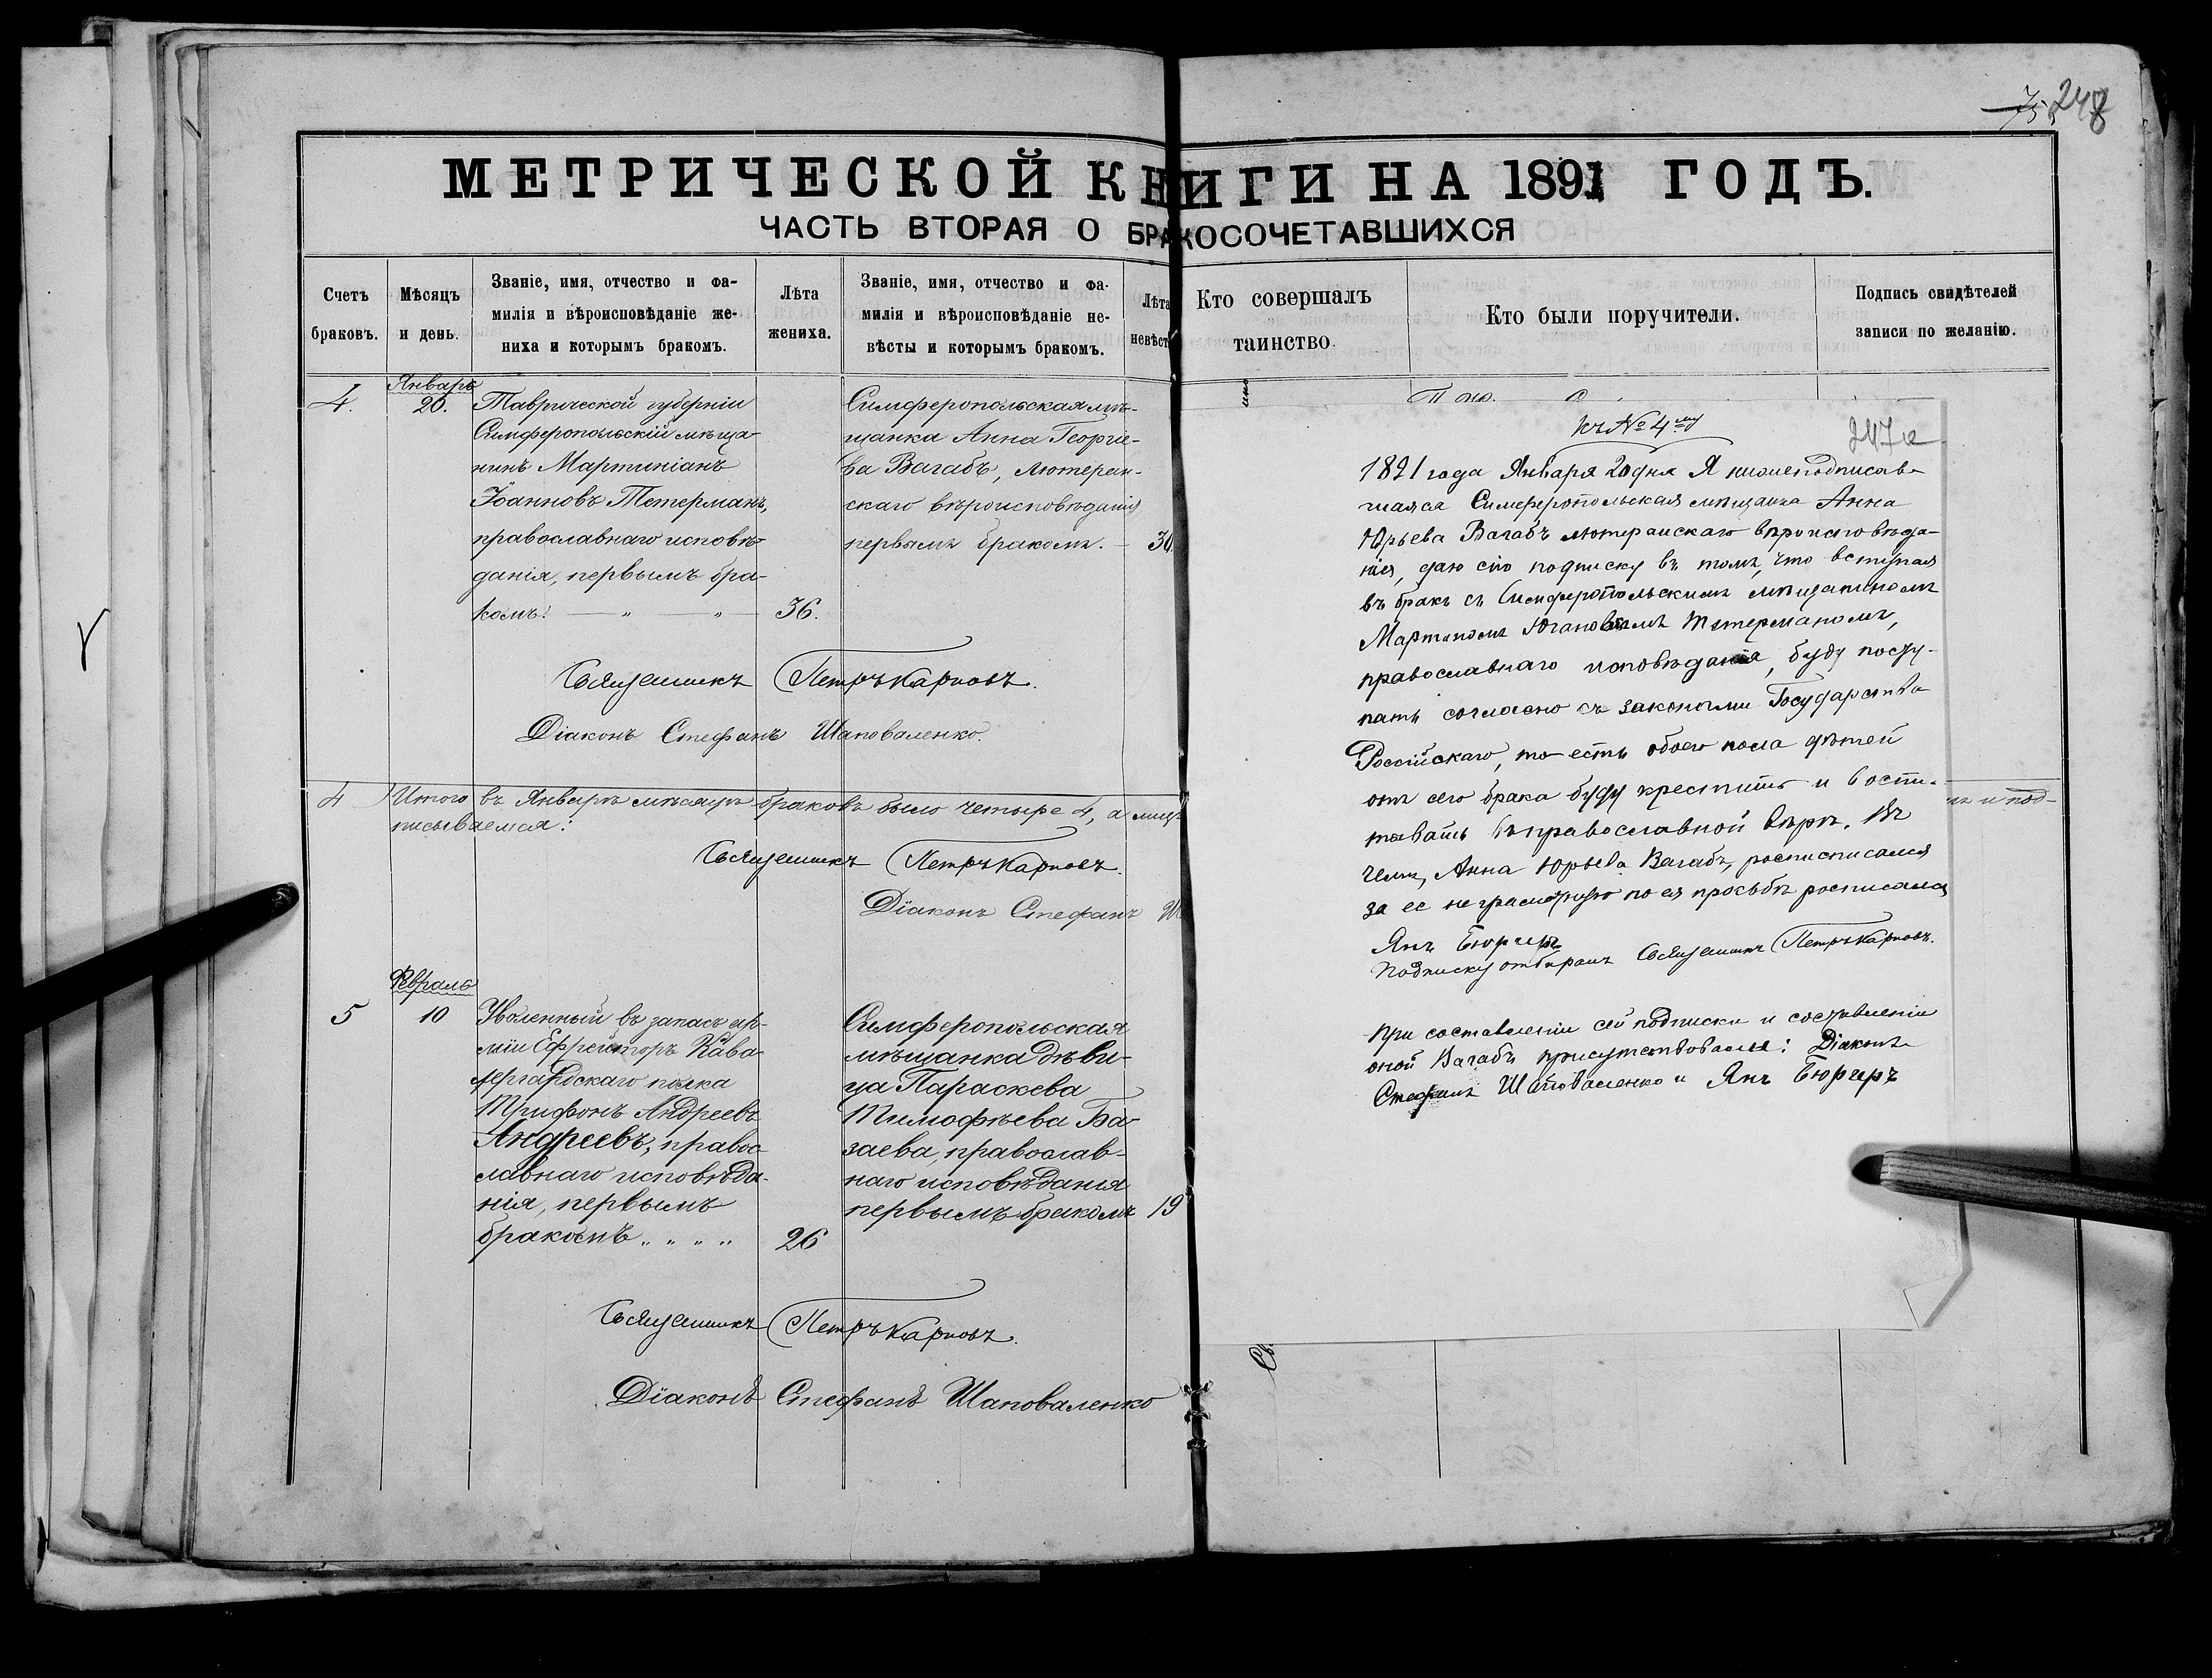 75 248
МЕТРИЧЕСКОЙ КНИГИ НА 1891 ГОДЪ.
ЧАСТЬ ВТОРАЯ О БРАКОСОЧЕТАВШИХСЯ
Счетъ
браковъ.
Мѣсяцъ
и день.
Званіе, имя, отчество и фа-
милія и вѣроисповѣданіе же-
ниха и которымъ бракомъ.
Лѣта
жениха.
Званіе, имя, отчество и фа-
милія и вѣроисповѣданіе не-
вѣсты и которымъ бракомъ.
Лѣта
невѣст
Кто совершалъ
таинство.
Кто были поручители.
Подпись свидѣтелей
записи по желанію.
4.
Январь
20.
Таврической губерніи
Симферопольскій мѣща-
нинъ Мартиніанъ
Іоанновъ Тетерманъ,
православнаго исповѣ-
данія, первымъ бра-
комъ. — „ — „ — 36.
Симферопольская мѣ-
щанка Анна Георгіе-
ва Вагабъ, лютеран-
скаго вѣроисповѣданія
первымъ бракомъ. — 30
Священникъ Петръ Карповъ.
Діаконъ Стефанъ Шаповаленко.
4 Итого въ Январѣ мѣсяцѣ браковъ было четыре 4, а
писываемся:
Священникъ Петръ Карповъ.
Діаконъ Стефанъ Ш
5
Февраль
10
Уволенный въ запасъ ар-
міи Ефрейторъ Кава-
лергардскаго полка
Трифонъ Андреевъ
Андреевъ, правос-
лавнаго исповѣда-
нія, первымъ
бракомъ „ „ „ „ 26
Симферопольская
мѣщанка дѣви-
ца Параскева
Тимофѣева Ба-
заева, православ-
наго исповѣданія
первымъ бракомъ 19
Священникъ Петръ Карповъ.
Діаконъ Стефанъ Шаповаленко
къ № 4му
247а
1891 года Января 20 дня Я нижеподписав-
шаяся Симферопольская мѣщанка Анна
Юрьева Вагабъ лютеранскаго вѣроисповѣда-
нія, даю сію подписку въ томъ, что вступая
въ бракъ съ Симферопольскимъ мѣщаниномъ
Мартыномъ Югановымъ Тетерманомъ,
православнаго исповѣданія, буду посту-
пать согласно съ законами Государства
Россійскаго, то есть обоего пола дѣтей
отъ сего брака буду крестить и воспи-
тывать въ православной вѣрѣ. Въ
чемъ, Анна Юрьева Вагабъ, росписписалася
за ее неграмотную по ея прозьбѣ росписался
Янъ Бюргеръ
Подписку отбиралъ Священникъ Петръ Карповъ.
При составленіи сей подписки и
оной Вагабъ присутствовали: Діаконъ
Стефанъ Шаповаленко и Янъ Бюргеръ
и под-